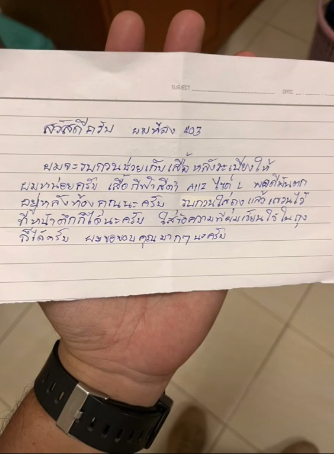 สวัสดีครับ ผมห้อง 403
ผมจะรบกวนช่วยเก็บเสื้อหลังระเบียงให้
ผมหน่อยครับ เสื้อกีฬาสีดำ ไซต์ L พอดีมันตก
อยู่หลังห้องคุณนะครับ รบกวนใส่ถุงแล้วแขวนไว้
ที่หน้าตึกก็ได้นะครับ ใส่ข้อความที่ผมเขียนใช้ในถุง
ก็ได้ครับ ผมขอขอบคุณมากๆนะครับ